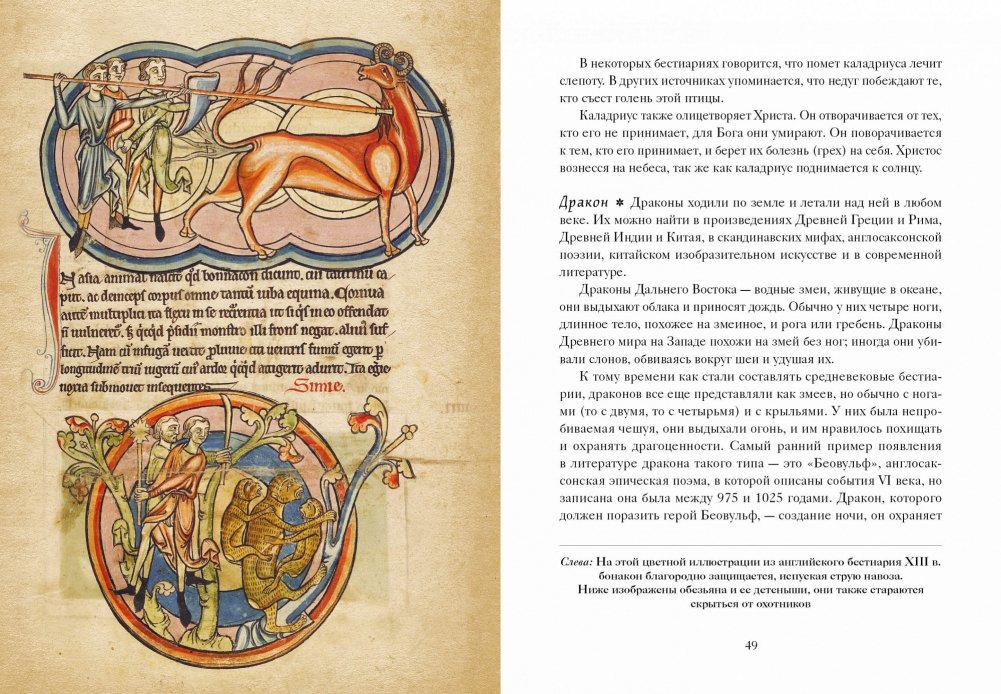 In asia animal nascit qd bonnacon dicunt. cui taurinu ca-
put. ac deinceps corpus omne tantu iuba equina. Cornua
multiplici ita flexu in se ut si quis in eo offendat
n uulneret. qcqd psidii monstro illi frons negat. aluus suf-
ficit. Nam cu in fugam fumu egerit p
longitudine triu iugeru ardor qcqd attigerit adurit. Ita egie-
noxia submouet insequentes. Simie.
В некоторых бестиариях говорится, что помет каладриуса лечит
слепоту. В других источниках упоминается, что недуг побеждают те,
кто съест голень этой птицы.
Каладриус также олицетворяет Христа. Он отворачивается от тех,
кто его не принимает, для Бога они умирают. Он поворачивается
к тем, кто его принимает, и берет их болезнь (грех) на себя. Христос
вознесся на небеса, так же как каладриус поднимается к солнцу.
Дракон * Драконы ходили по земле и летали над ней в любом
веке. Их можно найти в произведениях Древней Греции и Рима,
Древней Индии и Китая, в скандинавских мифах, англосаксонской
поэзии, китайском изобразительном искусстве и в современной
литературе.
Драконы Дальнего Востока — водные змеи, живущие в океане,
они выдыхают облака и приносят дождь. Обычно у них четыре ноги,
длинное тело, похожее на змеиное, и рога или гребень. Драконы
Древнего мира на Западе похожи на змей без ног; иногда они уби-
вали слонов, обвиваясь вокруг шеи и удушая их.
К тому времени как стали составлять средневековые бестиа-
рии, драконов все еще представляли как змеев, но обычно с нога-
ми (то с двумя, то с четырьмя) и с крыльями. У них была непро-
биваемая чешуя, они выдыхали огонь, и им нравилось похищать
и охранять драгоценности. Самый ранний пример появления
в литературе дракона такого типа — это «Беовульф», англосак-
сонская эпическая поэма, в которой описаны события VI века, но
записана она была между 975 и 1025 годами. Дракон, которого
должен поразить герой Беовульф, — создание ночи, он охраняет
Слева: На этой цветной иллюстрации из английского бестиария XIII в.
бонакон благородно защищается, испуская струю навоза.
Ниже изображены обезьяна и ее детеныши, они также стараются
скрыться от охотников
49